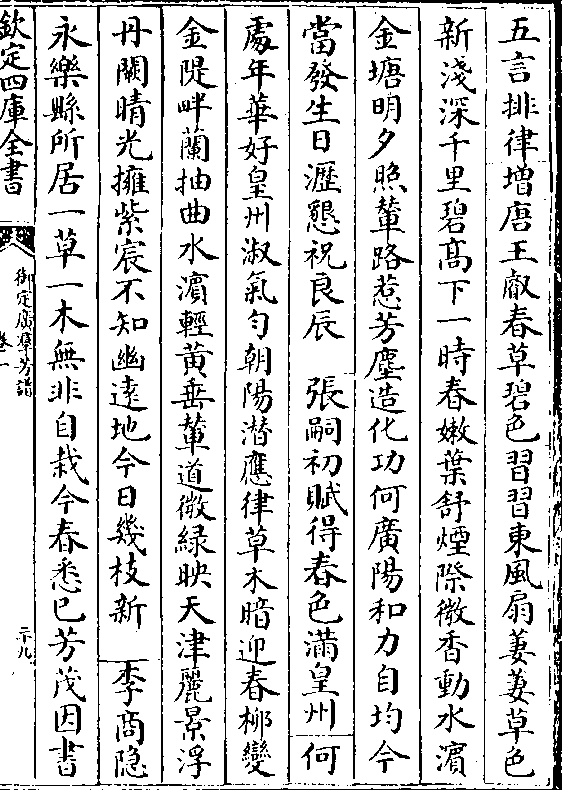 五言排律增唐王㲄春草碧色習習東風扇萋萋草色
新淺深千里碧高下一時春嫩葉舒煙際微香動水濵
金塘明夕照輦路惹芳塵造化功何廣陽和力自均今
當發生日瀝懇祝良辰　張嗣初賦得春色滿皇州何
處年華好皇州淑氣匀朝陽潛應律草木暗迎春柳變
金隄畔蘭抽曲水濵輕黄垂輦道微緑映天津麗景浮
丹闕晴光擁紫宸不知幽遠地今日幾枝新　李商隐
永樂縣所居一草一木無非自栽今春悉已芳茂因書
欽定四庫全書
御定廣羣芳譜
卷一
二十九